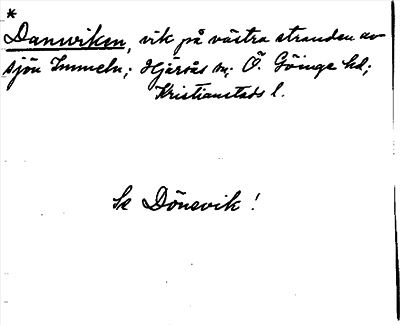 *
Danviken, vik på västra stranden av
sjön Immeln; Hjärsås sn; Ö. Göinge hd;
Kristianstads l.
Se Dönsvik!